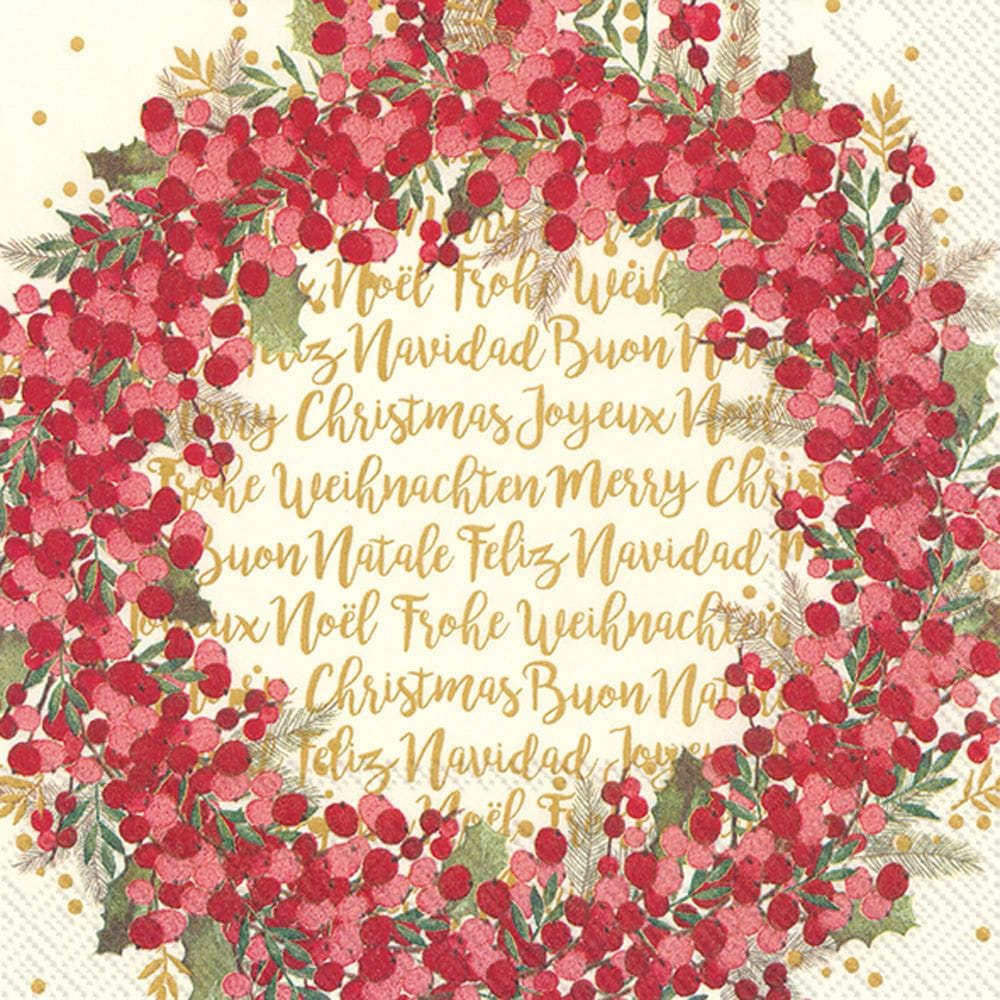 Merry
Noël Frohe Weih
Feliz Navidad Buon Nat
Merry Christmas Joyeux Noël
Frohe Weihnachten Merry Chris
Buon Natale Feliz Navidad M
Joyeux Noël Frohe Weihnachten
Christmas Buon Nat
Feliz Navidad Joyeu
Noël F